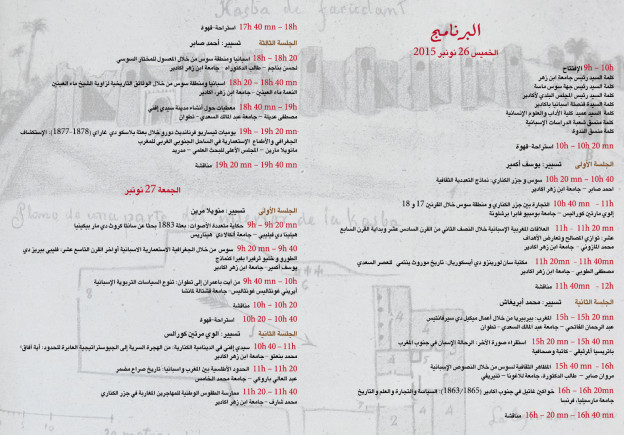 البرنامج
الخميس 26 نونبر 2015
9h – 10h الإفتتاح
كلمة السيد رئيس جامعة ابن زهر
كلمة السيد رئيس جهة سوس ماسة
كلمة السيد رئيس المجلس البلدي لأكادير
كلمة السيدة قنصلة أسبانيا بأكادير
كلمة السيد عميد كلية الآداب والعلوم الإنسانية
كلمة منسق شعبة الدراسات الإسبانية
كلمة منسق الندوة
10h – 10h 20 mn استراحة-قهوة
الجلسة الأولى تسيير: يوسف أكمير
10h 20 mn – 10h 40 سوس و جزر الكناري: نماذج التعددية الثقافية
احمد صابر – جامعة ابن زهر أكادير
10h 40 mn - 11h التجارة بين جزر الكناري و منطقة سوس خلال القرنين 17 و 18
إلوي مارتين كوراليس – جامعة بومبيو فابرا برشلونة
11h – 11h 20mn العلاقات المغربية الإسبانية خلال النصف الثاني من القرن السادس عشر وبداية القرن السابع
عشر: توازي المصالح وتعارض الأهداف
محمد المازوني – جامعة ابن زهر أكادير
11h 20mn – 11h 40mn مكتبة سان لورينزو دي أيسكوريال: تاريخ موروث ينتمي للعصر السعدي
مصطفى الطوبي – جامعة ابن زهر أكادير
11h 40mn – 12h مناقشة
الجلسة الثانية تسيير: محمد أبريغاش
15h – 15h 20 mn المغرب: بيربيريا من خلال أعمال ميكيل دي سيرفانتيس
عبد الرحمان الفاتحي – جامعة عبد المالك السعدي – تطوان
15h 20 mn – 15h 40 mn استقراء صورة الآخر: الرحالة الإسبان في جنوب المغرب
باتريسيا ألمرثيغي – كاتبة وصحافية
15h 40 mn – 16h المظاهر الثقافية لسوس من خلال النصوص الإسبانية
مروان صابر – طالب الدكتورة، جامعة للاغونا – تنيريفي
16h – 16h 20mn خواكين غاتيل في جنوب أكادير (1863/1865): السياسة والتجارة والعلم والتاريخ
جامعة مارسيليا، فرنسا
16h 20 mn – 16h 40 mn مناقشة
17h 40 mn – 18h استراحة-قهوة
الجلسة الثالثة تسيير: أحمد صابر
18h – 18h 20 اسبانيا ومنطقة سوس من خلال المعسول للمختار السوسي
لحسن بناجم – طالب الدكتوراه – جامعة ابن زهر أكادير
18h 20 mn – 18h 40 mn اسبانيا ومنطقة سوس من خلال الوثائق التاريخية لزاوية الشيخ ماء العينين
النعمة ماء العينين - جامعة ابن زهر، أكادير
18h 40 mn – 19h معطيات حول أنشاء مدينة سيدي إفني
مصطفى عديلة – جامعة عبد المالك السعدي- تطوان
19h – 19h 20 mn يوميات ثيساريو فرنانديث دورو خلال رحلة بلاسكو دي غاراي (1877-1878): الإستكشاف
الجغرافي والأطماع الإستعمارية في الساحل الجنوبي الغربي للمغرب
مانويلا مارين – المجلس الأعلى للبحث العلمي – مدريد
19h 20 mn – 19h 40 mn مناقشة
الجمعة 27 نونبر
الجلسة الأولى تسيير: منويلا مرين
9h – 9h 20 mn حكاية متعددة الأصوات: بعثة 1883 بحثا عن سانتا كروث دي مار بيكينيا
هيلينا دي فيليبي – جامعة ألكالا دي هيناريس
9h 20 mn – 9h 40 سوس من خلال الجغرافية الاستعمارية الاسبانية أواخر القرن التاسع عشر: فليبي بيريز دي
الطورو و خليو ثرفيرا بفيرا كنماذج
يوسف أكمير – جامعة ابن زهر أكادير
9h 40 mn – 10h من أيت باعمران إلى تطوان: تنوع السياسات التربوية الإسبانية
أيريني غونثاليس غونثاليس- جامعة قشتالة كانشا
10h – 10h 20 مناقشة
10h 20 – 10h 40 استراحة-قهوة
الجلسة الثانية تسيير: الوي مرتين كورالس
10h 40 – 11h سيدي إفني في الدينامية الكنارية: من الهجرة السرية إلى الجيوستراتيجية العابرة للحدود: أية آفاق؟
محمد بنعتو – جامعة ابن زهر أكادير
11h – 11h 20 الحدود الأطلسية بين المغرب واسبانيا: تاريخ صراع مضمر
عبد العالي باروكي – جامعة محمد الخامس
11h 20 – 11h 40 ممارسة الطقوس الوطنية للمهاجرين المغاربة في جزر الكناري
محمد شارف – جامعة ابن زهر أكادير
Kasba de faricdant
Plano de una parte de la Kasba